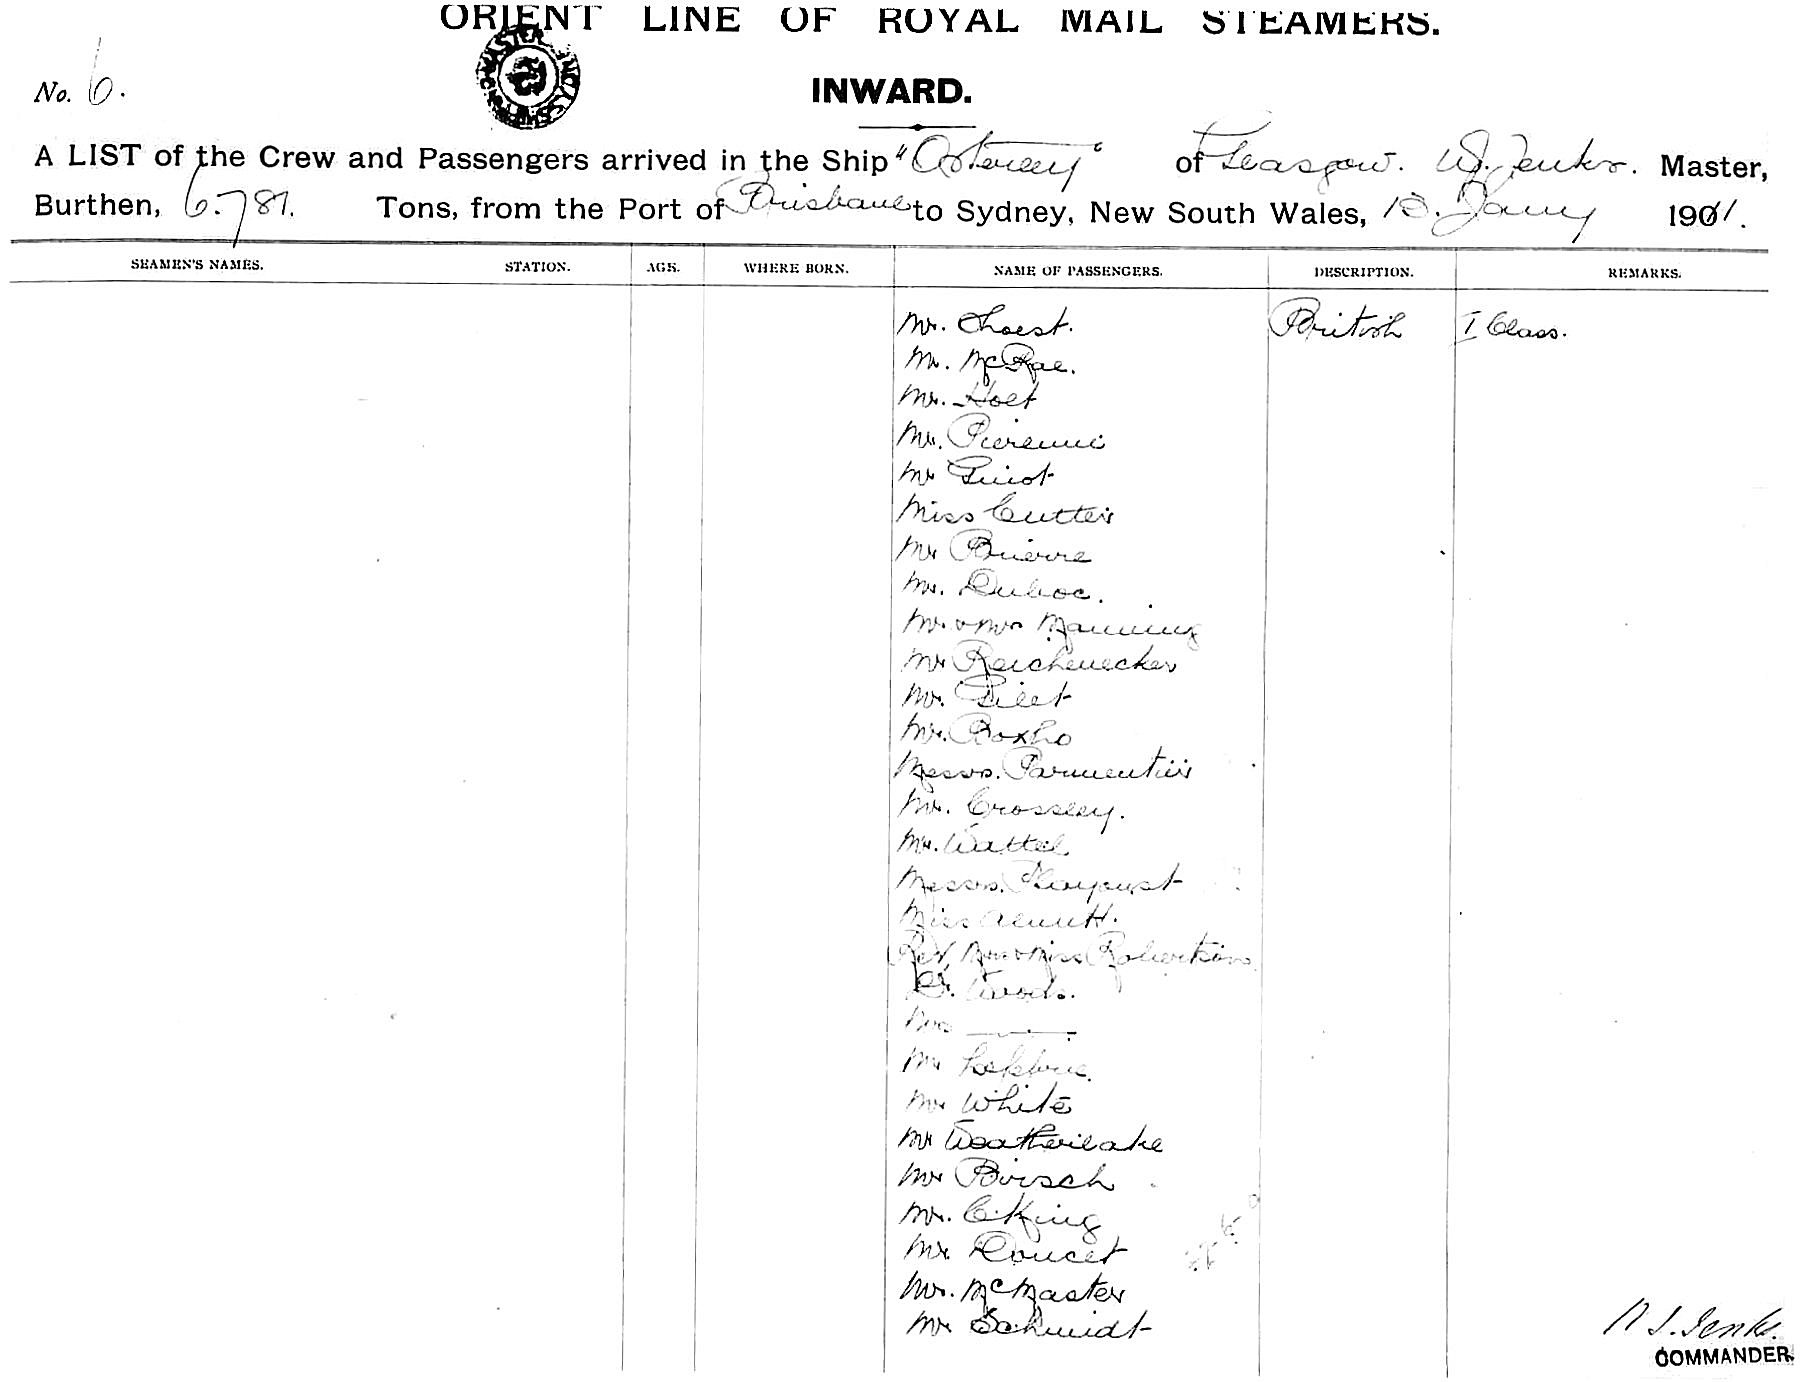 ORIENT LINE OF ROYAL MAIL STEAMERS.
No. 6.
INWARD.
A LIST of the Crew and Passengers arrived in the Ship "Osterley" of Glasgow. Jenks. Master,
Burthen, 6.781. Tons, from the Port of Brisbane to Sydney, New South Wales, 13. Jany 1911.
SEAMEN'S NAMES. STATION. AGE. WHERE BORN. NAME OF PASSENGERS. DESCRIPTION. REMARKS.
Mr. British I Class.
Mr. McRae.
Mr. Holt
Mr.
Mr Guiot
Miss Cutter
Mr Brierre
Mr. Duboc.
Mr. & Mrs Manning
Mr Reichenecker
Mr. Gilet
Mr. Boxho
Messrs. Parmentier
Mr. Crossley.
Mr. Wattel
Messrs. Playoust
Miss
Rev, Mrs & Miss Robertson
Dr. Woods.
Mrs ———
Mr Lefebvre.
Mr White
Mr Weatherilake
Mr Birsch
Mr. C. King
Mr. Doucet
Mr. McMaster
Mr Schmidt
Jenks.
COMMANDER.